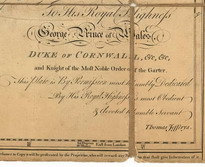 To His Royal Highness
George Prince of Wales,
Duke of Cornwall, &c. &c.
and Knight of the Most Noble Order of the Garter
This Plate is By Permission most humbly Dedicated
By His Royal Highness's most Obedient
& devoted humble Servant
Thomas Jefferys.